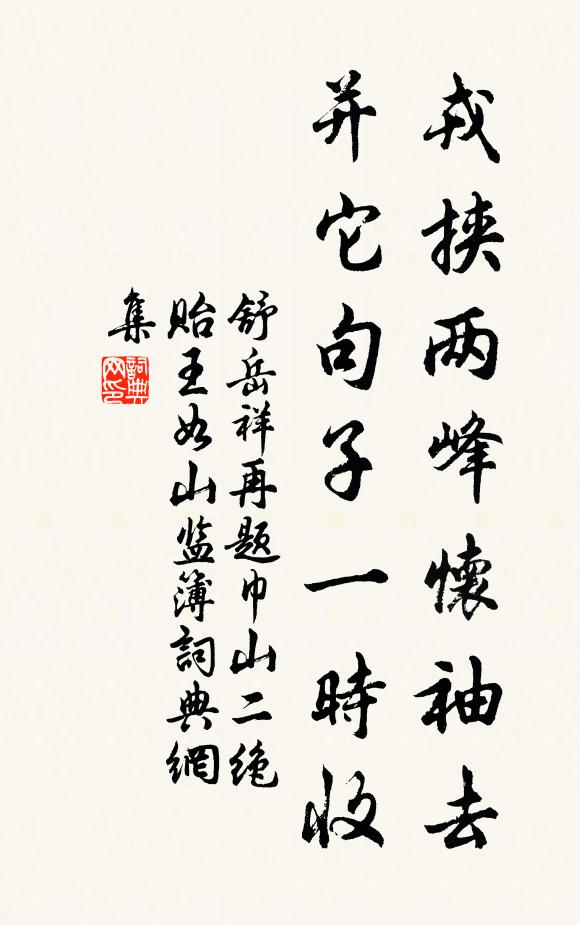 戏挟两峰懷袖去
并它句子一時收
舒岳祥再题巾山二绝
貽王如山监簿詞典網
集
詞典
网印